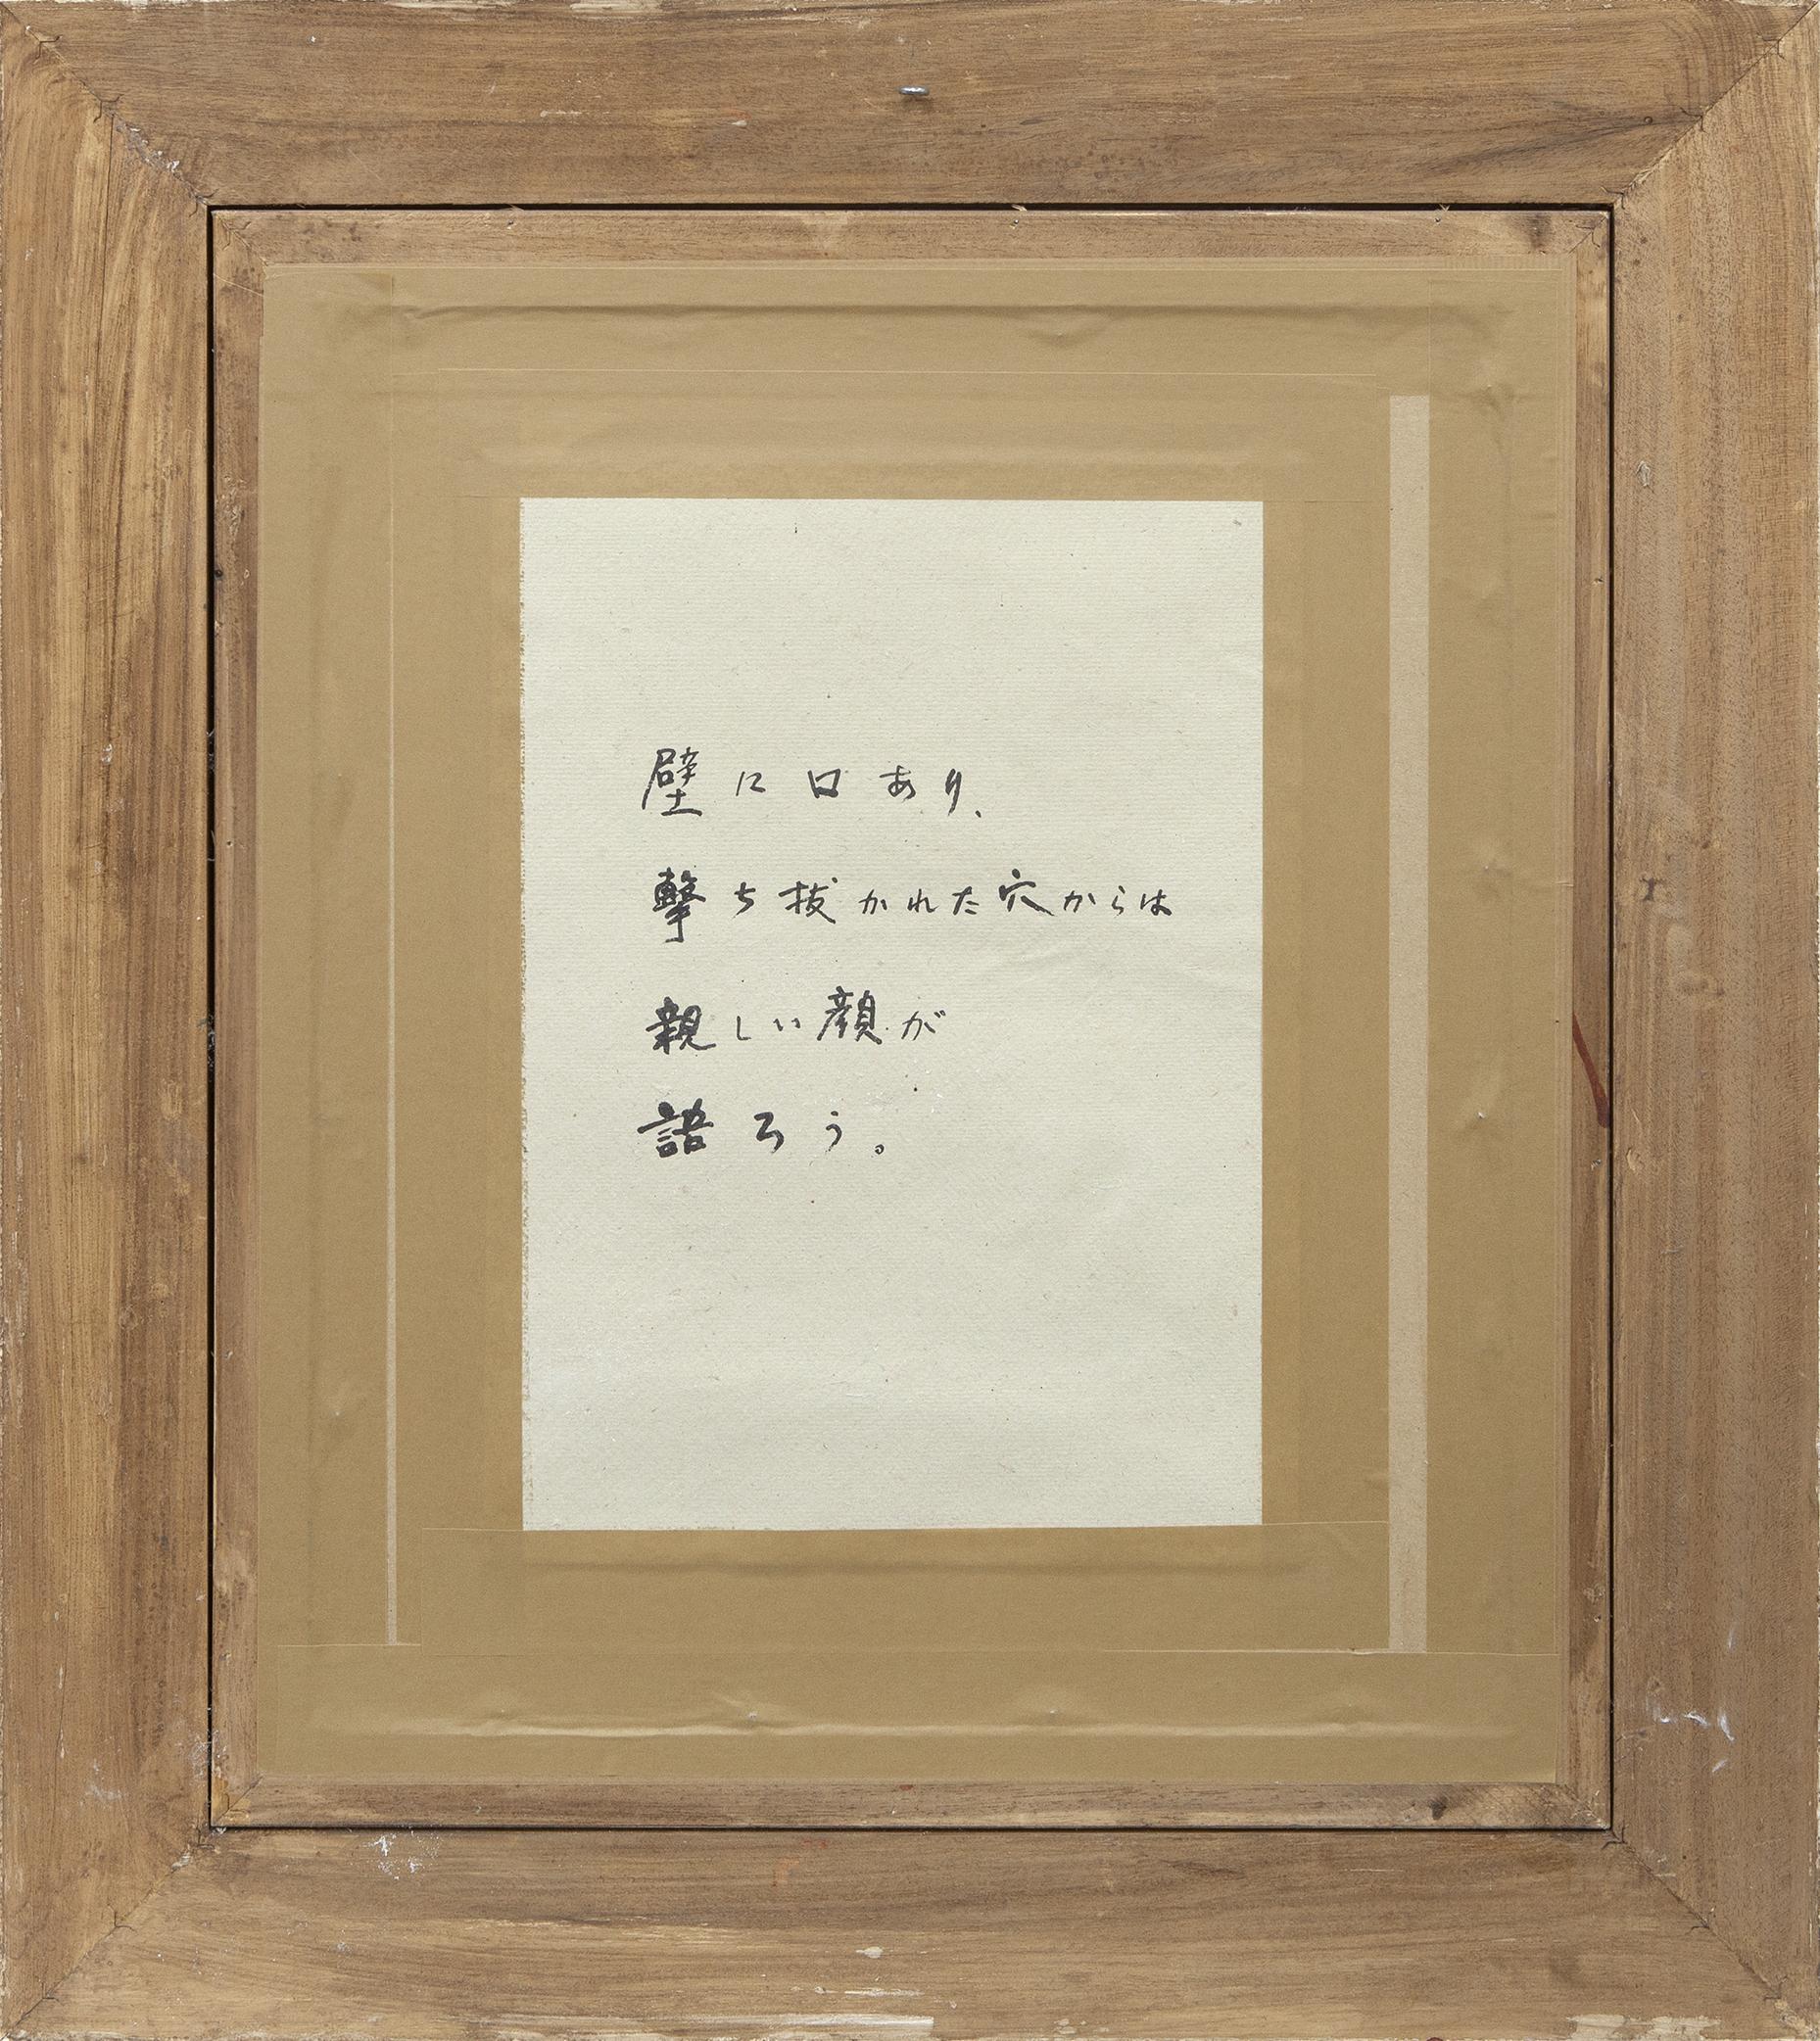 壁に口あり、
撃ち抜かれた穴からは
親しい顔が
語ろう。